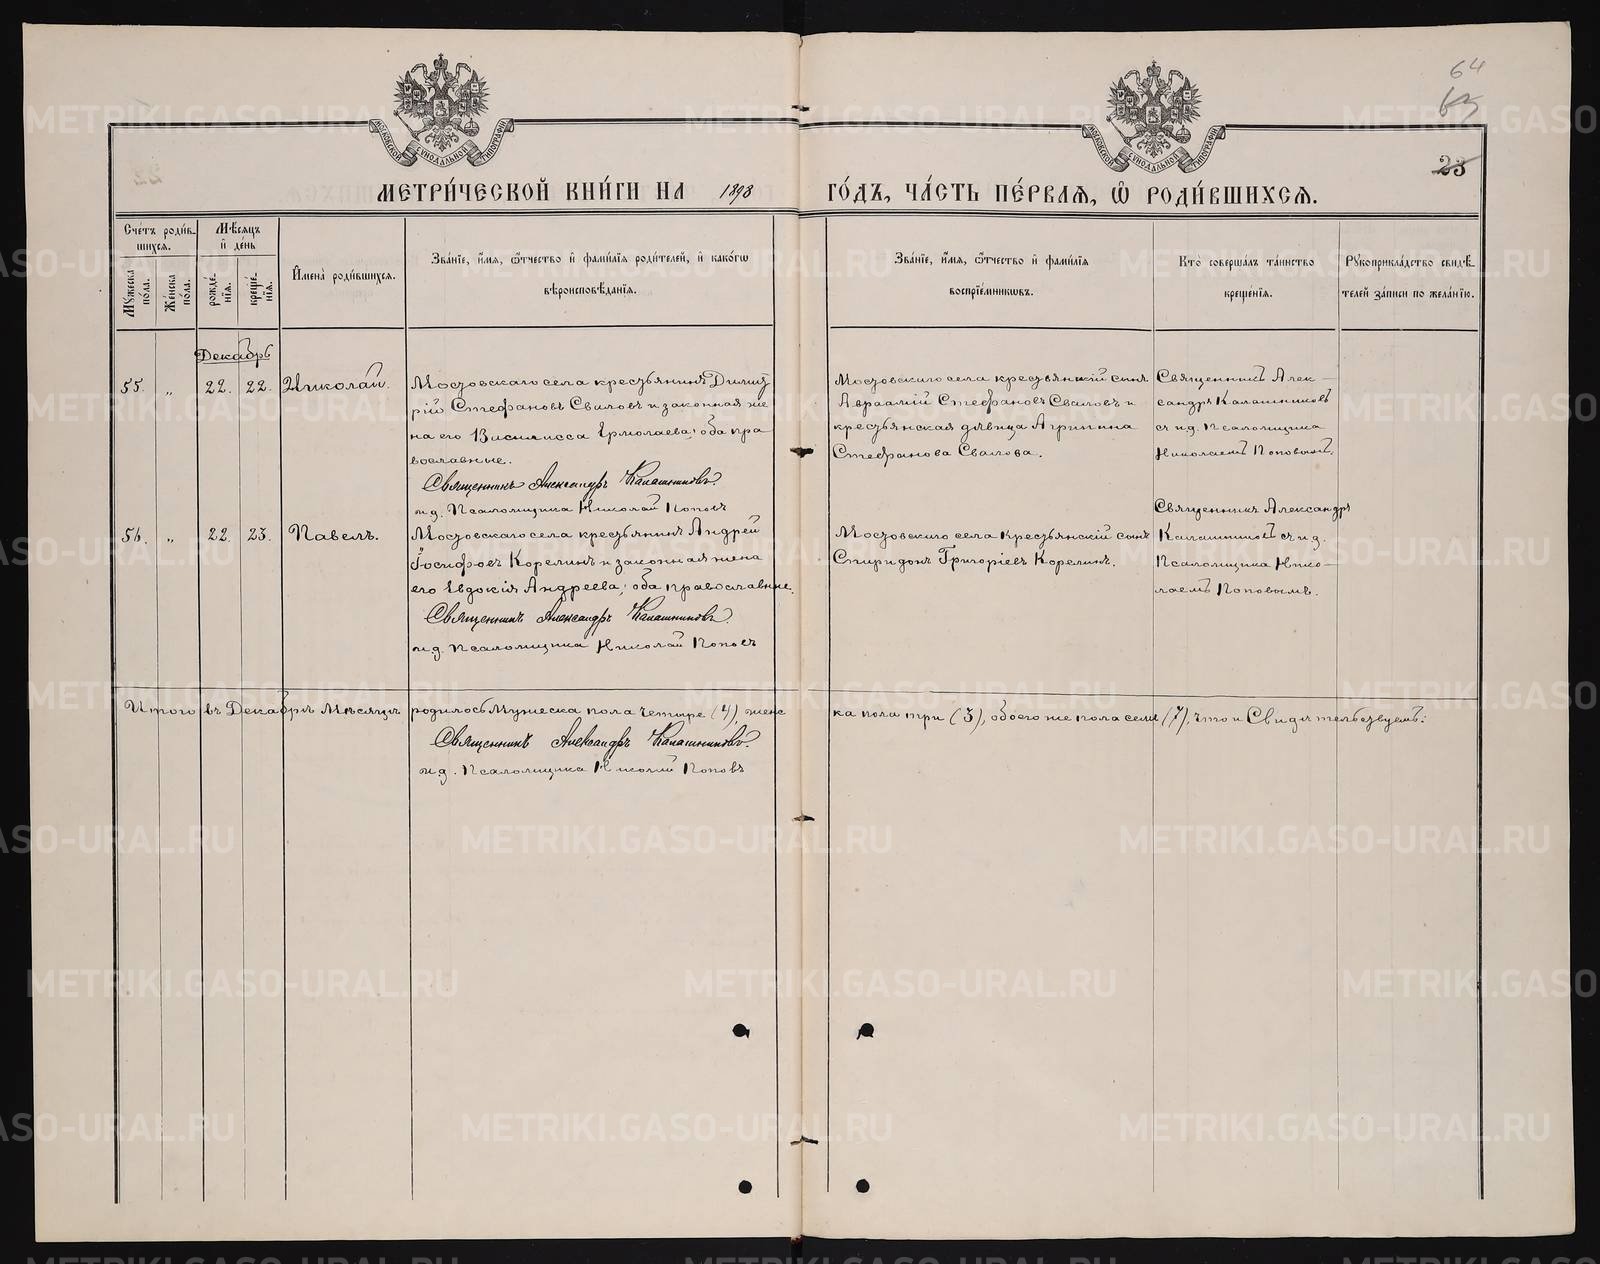 64
63
23
МОСКОВСКОЙ СУНОДАЛЬНОЙ ТИПОГРАФІИ
МОСКОВСКОЙ СУНОДАЛЬНОЙ ТИПОГРАФІИ
МЕТРИ́ЧЕСКОЙ КНИ́ГИ НА 1898 ГО́ДЪ, ЧА́СТЬ ПЕ́РВАѦ, Ѡ҆ РОДИ́ВШИХСѦ.
Сче́тъ роди́вшихсѧ.
Мѣ́сѧцъ и҆ де́нь
Мꙋ́жеска по́ла.
Же́нска по́ла.
рожде́нїѧ.
креще́нїѧ.
И҆мена̀ роди́вшихсѧ.
Зва́нїе, и҆́мѧ, ѻ҆́тчество и҆ фами́лїѧ роди́телей, и҆ како́гѡ
вѣроисповѣ́данїѧ.
Зва́нїе, и҆́мѧ, ѻ҆́тчество и҆ фами́лїѧ
воспрїе́мникѡвъ.
Кто̀ соверша́лъ та́инство
креще́нїѧ.
Рꙋкоприкла́дство свидѣ́-
телей за́писи по жела́нїю.
Декабрь
55. „ 22. 22. Николай.
Мостовскаго села крестьянинъ Димит
рій Стефановъ Сваловъ и законная же
на его Василисса Ермолаева; оба пра
вославные.
Священникъ Александръ Калашниковъ.
и.д. Псаломщика Николай Поповъ
Мостовскаго села крестьянскій сынъ
Авраамій Стефановъ Сваловъ и
крестьянская дѣвица Агрипина
Стефанова Свалова.
Священникъ Алек-
сандръ Калашниковъ
съ и.д. Псаломщика
Николаемъ Поповымъ.
56. „ 22. 23. Павелъ.
Мостовскаго села крестьянинъ Андрей
Іосифовъ Корелинъ и законная жена
его Евдокія Андреева; оба православные.
Священникъ Александръ Калашниковъ.
и.д. Псаломщика Николай Поповъ
Мостовскаго села Крестьянскій сынъ
Спиридонъ Григоріевъ Корелинъ.
Священникъ Александръ
Калашниковъ съ и.д.
Псаломщика Нико-
лаемъ Поповымъ.
Итого въ Декабрѣ Мѣсяцѣ родилось Мужеска пола четыре (4), женс
ка пола три (3), обоего же пола семь (7), что и Свидѣтельствуемъ:
Священникъ Александръ Калашниковъ.
и.д. Псаломщика Николай Поповъ
METRIKI.GASO-URAL.RU